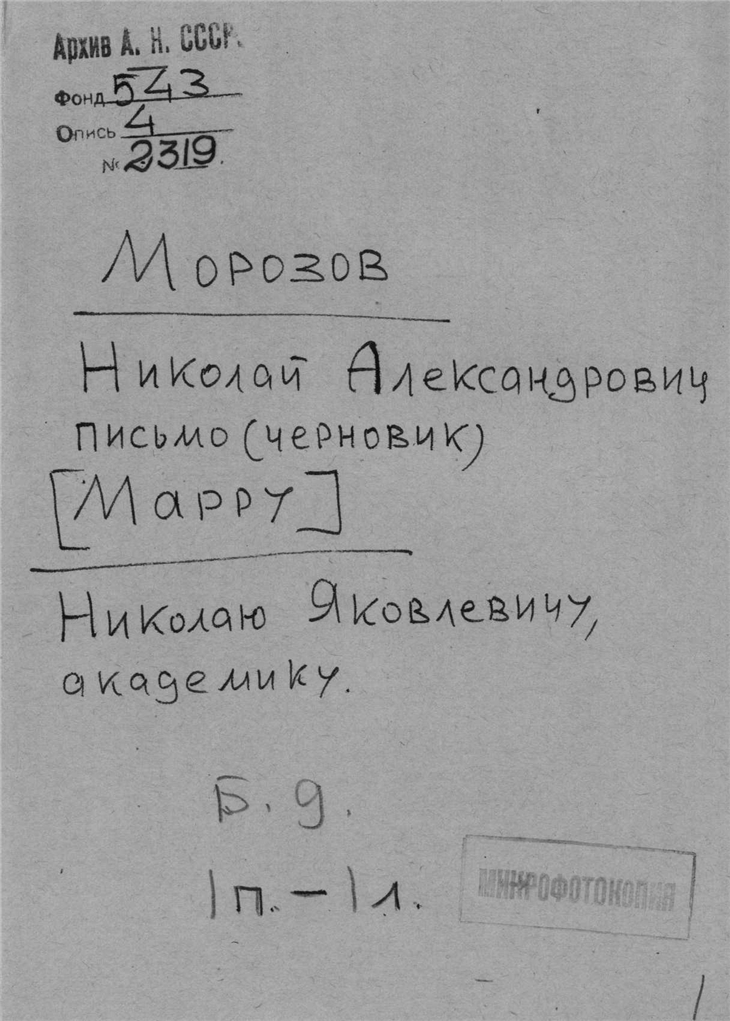 Архив А. Н. СССР.
Фонд 543
Опись 4
№ 2319.
Морозов
Николай Александрович
письмо (черновик)
[Марру]
Николаю Яковлевичу,
академику.
Б. д.
1 п. – 1 л.
МИКРОФОТОКОПИЯ
1